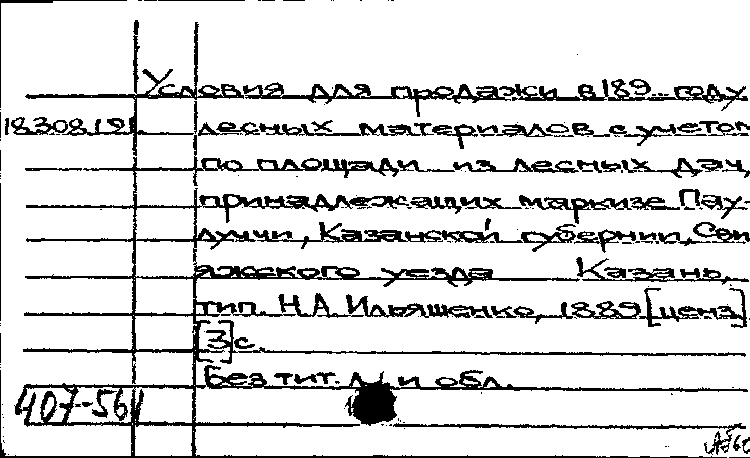 Условия для продажи в 189.. году
18.308.191. лесных материалов с учетом
по площади из лесных дач,
принадлежащих маркизе Пау-
луччи, Казанской губернии, Сви
яжского уезда Казань,
тип. Н.А. Ильяшенко, 1889 [ценз.]
[3] с.
Без тит. л. и обл.
407-561